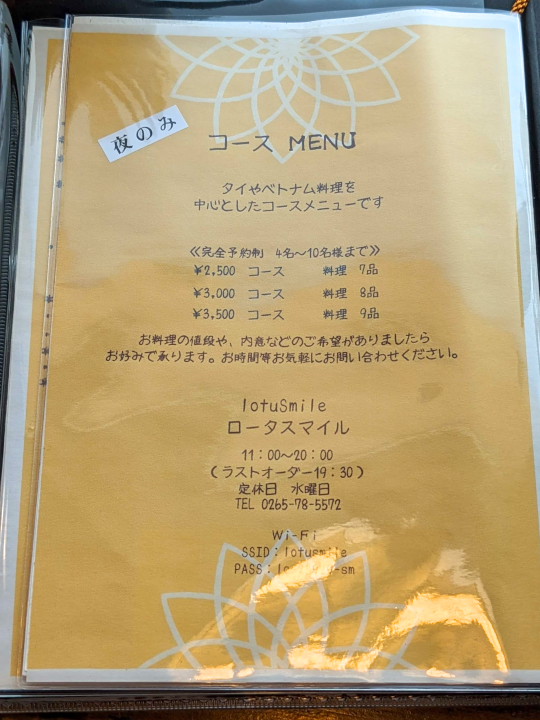 夜のみ
コース MENU
タイやベトナム料理を
中心としたコースメニューです
≪完全予約制 4名～10名様まで≫
¥2,500 コース 料理 7品
¥3,000 コース 料理 8品
¥3,500 コース 料理 9品
お料理の値段や、内意などのご希望がありましたら
お好みで承ります。お時間等お気軽にお問い合わせください。
lotuSmile
ロータスマイル
11：00～20：00
（ラストオーダー19：30）
定休日 水曜日
TEL 0265-78-5572
Wi-Fi
SSID：lotusmile
PASS：